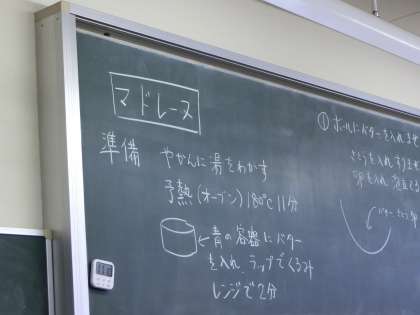 マドレーヌ
準備 やかんに湯をわかす
予熱(オーブン)180℃ 11分
←青の容器にバター
を入れ、ラップでくるみ
レンジで2分
①ボールにバターを入れ
さとうを入れ
卵を入れ
バター